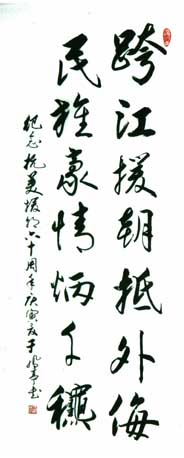 跨江援朝抵外侮
民族豪情炳千秋
纪念抗美援朝六十周年庚寅夏于